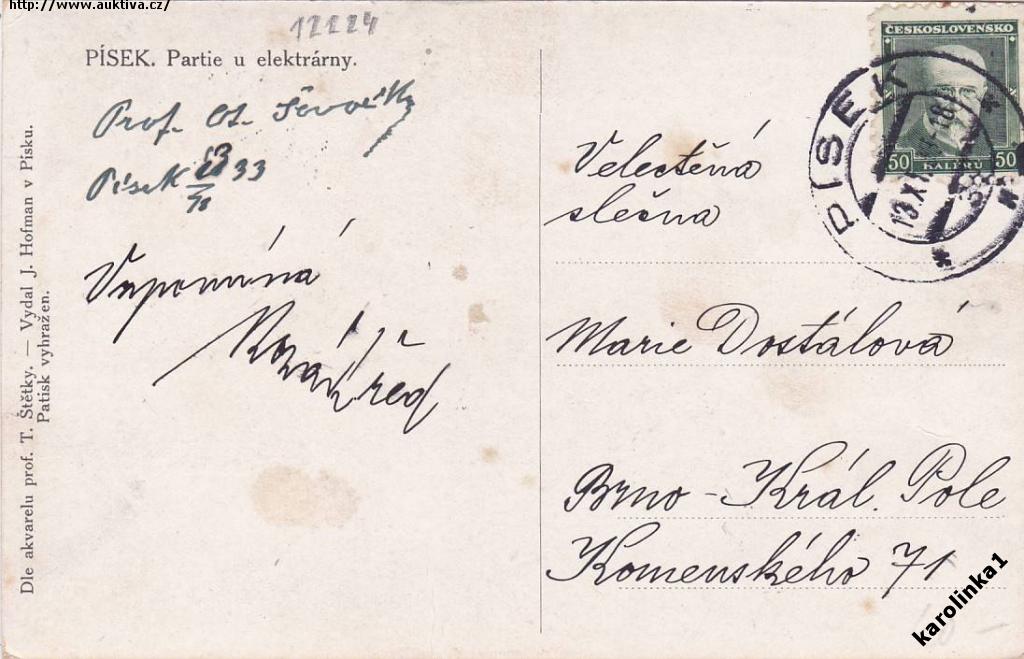 http://www.auktiva.cz/
12224
PÍSEK. Partie u elektrárny.
Prof. Ot.
Písek 13/10 33
Vzpomíná
Dle akvarelu prof. T. Štětky. — Vydal J. Hofman v Písku.
Patisk vyhražen.
ČESKOSLOVENSKO
50 HALÉŘŮ 50
PÍSEK
Velectěná
slečna
Marie Dostálová
Brno - Král. Pole
Komenského 71
karolinka1